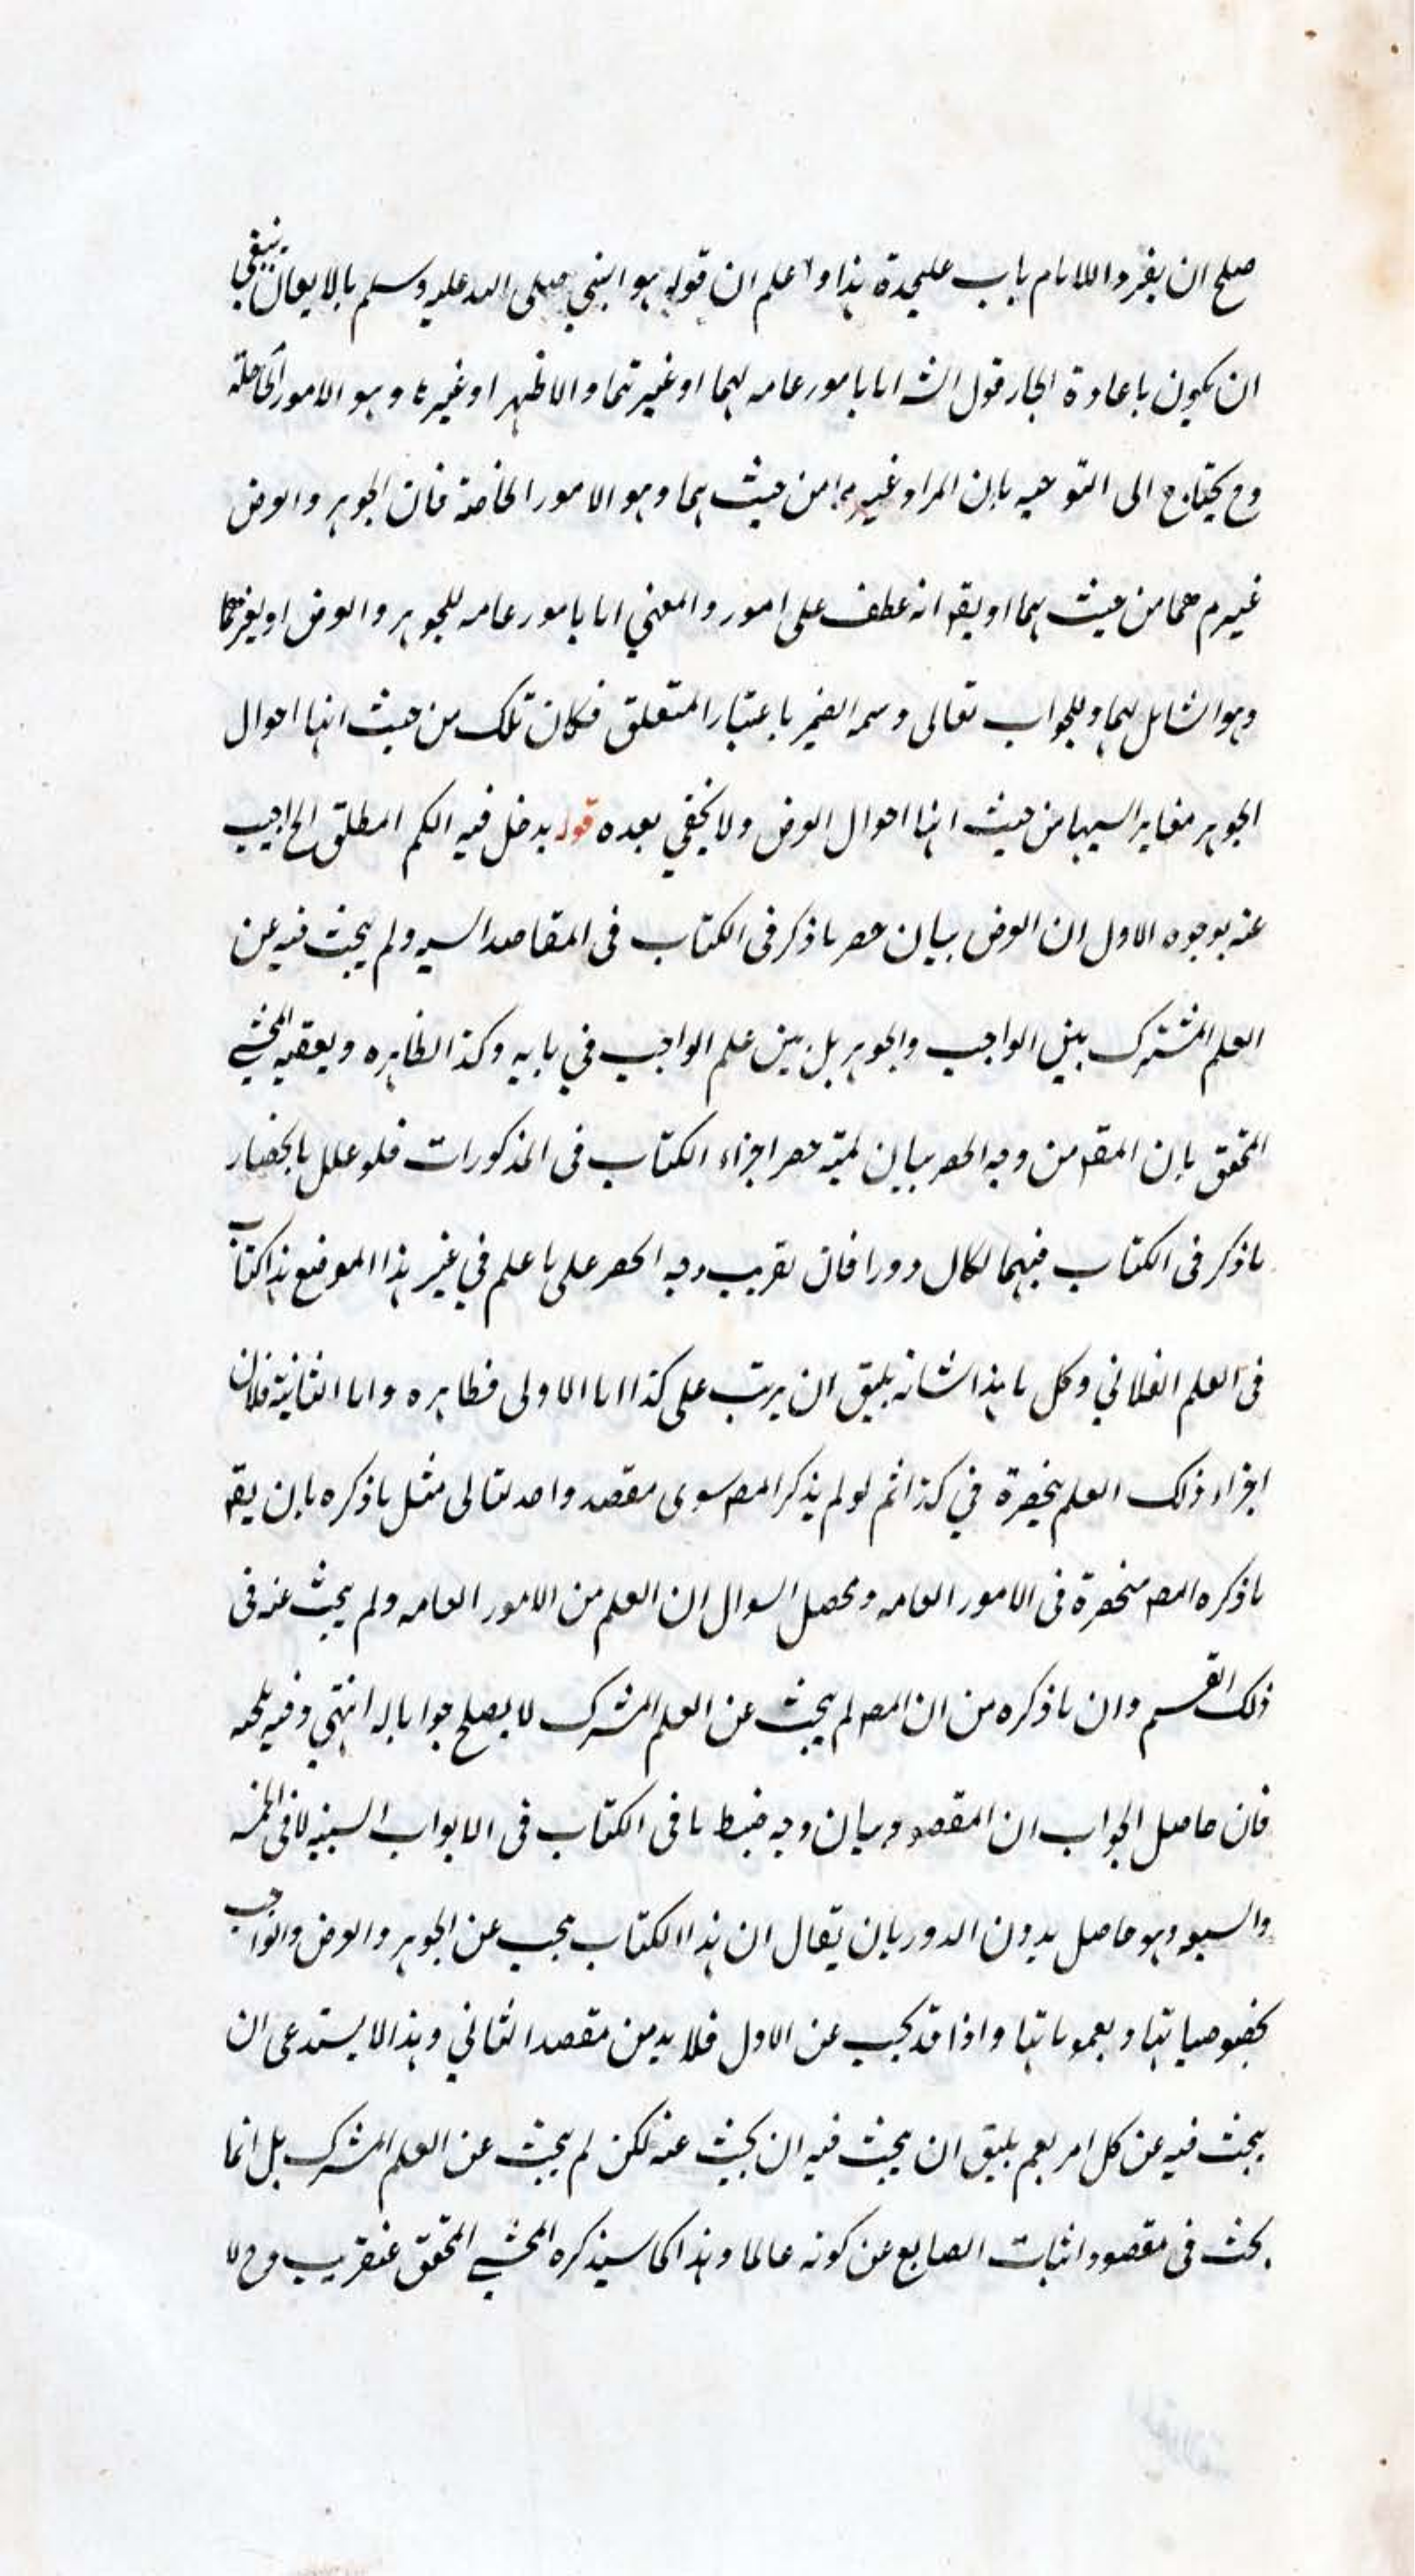 صلح ان يفرد واللامام باب عليحدة هذا واعلم ان قوله هو النبي صلى الله عليه وسلم بالايقان ينبغي
ان يكون باعادة الجار قول الش اما بامور عامه لهما او غيرتهما والاظهر او غيرها وهو الامور الخاصة
وح يحتاج الى التوجيه بان المراد غيرهما من حيث هما وهو الامور الخاصة فان الجوهر والعرض
غيرهما من حيث هما او يقه انه عطف على امور والمعني اما بامور عامه للجوهر والعرض او بغيرهما
وهو الشامل لهما وللجواب تعالى وسمه الضمير باعتبار المتعلق فكان تلك من حيث انها احوال
الجوهر مغاير اليها من حيث انها احوال العرض ولا يخفي بعده قوله يدخل فيه الكم المطلق الخ اجيب
عنه بوجوه الاول ان العرض بيان حصر ما ذكر فى الكتاب فى المقاصد السته ولم يبحث فيه عن
العلم المشترك بين الواجب والجوهر بل بين علم الواجب في بابه وكذا نظايره وتعقبه المحشي
المحقق بان المقه من وجه الحصر بيان لمية حصر اجزاء الكتاب فى المذكورات فلو علل بانحصار
ما ذكر فى الكتاب فيهما لكان دورا فان تقريب وجه الحصر على ما علم في غير هذا الموضع هذا كتاب
فى العلم الفلاني وكل ما هذا شانه يليق ان يرتب على كذا اما الاولى فظاهره واما الثانية فلان
اجزاء ذلك العلم منحصرة في كذا ثم لو لم يذكر المص سوى مقصد واحد لتالى مثل ما ذكره بان يقه
ما ذكره المص منحصرة فى الامور العامه ومحصل السوال ان العلم من الامور العامه ولم يبحث عنه فى
ذلك القسم وان ما ذكره من ان المص لم يبحث عن العلم المشترك لا يصلح جوابا له انتهي وفيه بحث
فان حاصل الجواب ان المقصود بيان وجه ضبط ما فى الكتاب فى الابواب السته لا فى الخمسه
والسبعه وهو حاصل بدون الدور بان يقال ان هذا الكتاب يبحث عن الجوهر والعرض والواجب
بخصوصياتها وبعموماتها واذا قد بحث عن الاول فلا بد من مقصد الثاني وهذا لا يستدعى ان
يبحث فيه عن كل امر يعم يليق ان يبحث فيه ان يبحث عنه لكن لم يبحث عن العلم المشترك بل انما
بحث فى مقصود اثبات الصانع عن كونه عالما وهذا كما سيذكره المحشي المحقق عنقريب وح لا